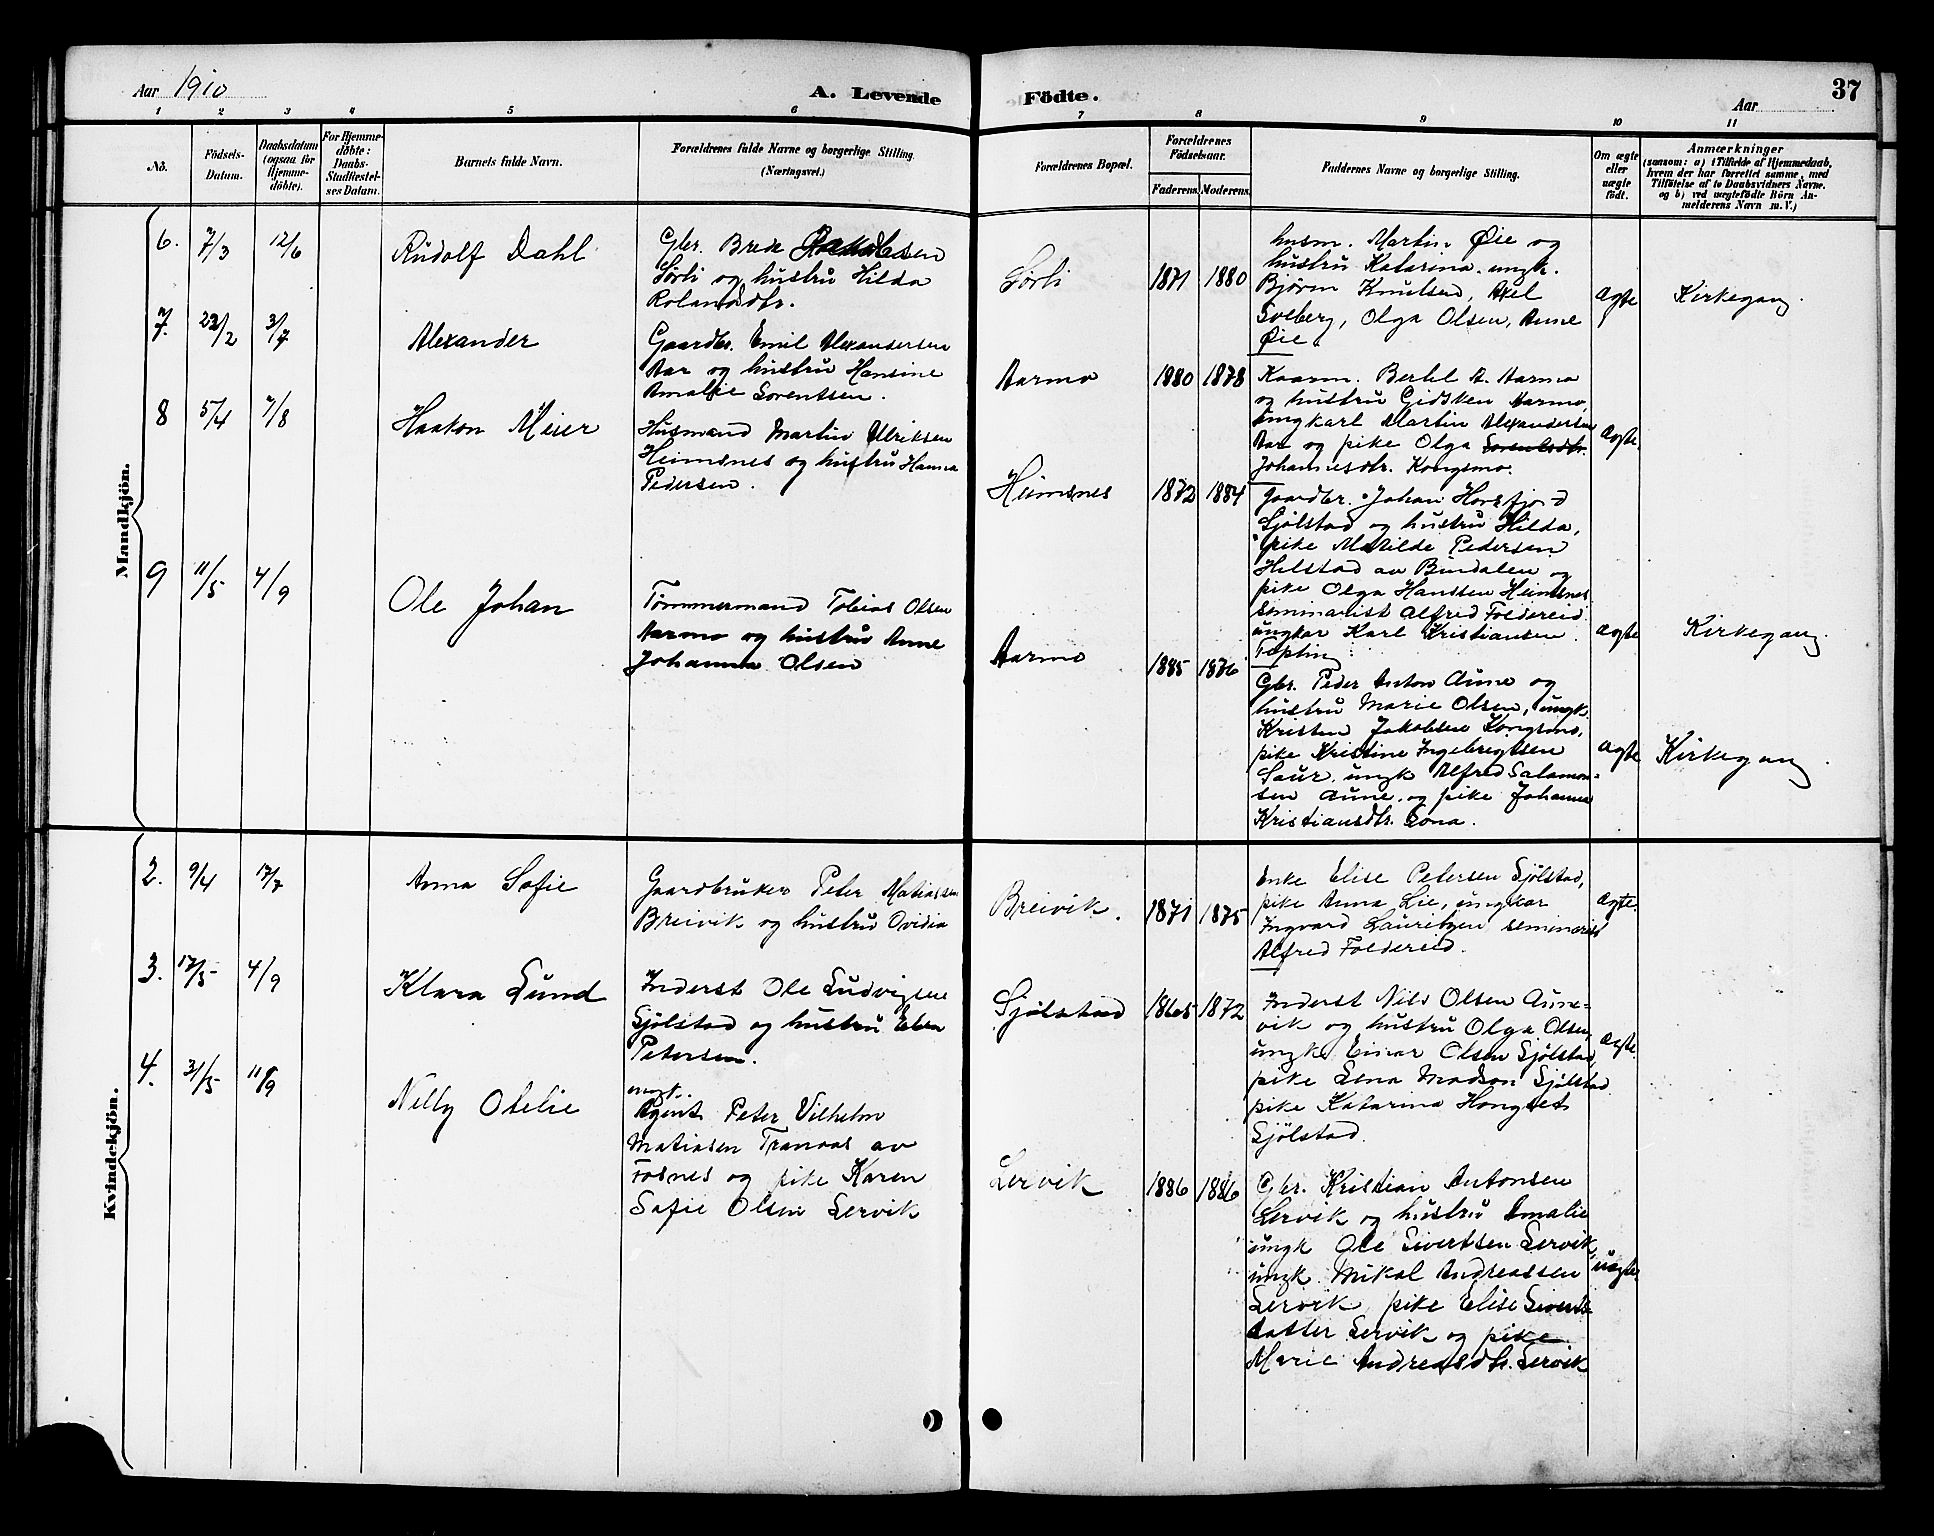 Aar 1910
A. Levende
Födte.
Aar
37
1 2 3 4 5 6 7 8 9 10 11
No.
Födsels-
Datum.
Daabsdatum
(ogsaa för
Hjemme-
döbte).
For Hjemme-
döbte:
Daabs-
Stadfæstel-
ses Datum.
Barnets fulde Navn.
Forældrenes fulde Navne og borgerlige Stilling.
(Næringsvei.)
Forældrenes Bopæl.
Forældrenes
Födselsaar.
Faderens.
Moderens.
Faddernes Navne og borgerlige Stilling.
Om ægte
eller
uægte
födt.
Anmærkninger
(saasom: a) i Tilfælde af Hjemmedaab,
hvem der har forrettet samme, med
Tilföielse af to Daabsvidners Navne.
og b) ved uægtefödte Börn An-
melderens Navn m. V.)
Mandkjön.
6. 7/3 12/6
Rudolf Dahl
Gbr. Brede Jakobsen
Sørli og hustru Hilda
Rolandsdtr.
Sørli
1871 1880
husm. Martin Øie og
hustru Katarina. ungk.
Bjørn Knutsen, Axel
Solberg, Olga Olsen, Anne
Øie.
Ægte
Kirkegang.
7. 22/2 3/7
Alexander
Gaardbr. Emil Alexandersen
Aar og hustru Hansine
Amalie Sorentsen.
Aarmo
1880 1878
Kaarm. Bertel A. Aarmo
og hustru Gidsken Aarmo,
ungkarl Martin Alexandersen
Aar og pike Olga Sorentsdtr.
Johannesdtr. Kongsmo.
Ægte.
8 5/4 7/8
Haakon Meier
Husmand Martin Ulriksen
Heimsnes og hustru Hanna
Pedersen.
Heimsnes
1872 1884
Gaardbr. Johan Horsfjord
Sjølstad og hustru Hilda,
pike Matilde Pedersen
Helstad av Bindalen og
pike Olga Hanssen Heimsnes
seminarist Alfred Foldereid
ungkar Karl Kristiansen
Tøpling.
Ægte
Kirkegang.
9 11/5 4/9
Ole Johan
Tømmermand Tobias Olsen
Aarmo og hustru Anne
Johanna Olsen
Aarmo
1885 1876
Gbr. Peder Anton Aune og
hustru Marie Olsen, ungk.
Kristen Jakobsen Kongsmo,
pike Kristine Ingebrigtsen
Saur, ungk Alfred Salamon-
sen Aune, og pike Johanna
Kristiansdtr. Sona.
Ægte
Kirkegang.
Kvindekjön.
2. 9/4 17/7
Anna Sofie
Gaardbruker Peter Matiassen
Breivik og hustru Ovidia
Breivik.
1871 1875
Enke Elise Petersen Sjølstad,
pike Anna Lie, ungkar
Ingvard Lauritzen seminarist
Alfred Foldereid.
Ægte.
3. 17/5 4/9
Klara Lund
Inderst Ole Ludvigsen
Sjølstad og hustru Elen
Petersen.
Sjølstad
1865 1872
Inderst Nils Olsen Aune-
vik og hustru Olga Olsen,
ungk. Einar Olsen Sjølstad,
pike Lena Madson Sjølstad
pike Katarina Hongset
Sjølstad.
Ægte.
4. 31/5 11/9
Nelly Otelie
ungk.
Agent Peter Vilhelm
Matiasen Tranaas av
Fosnes og pike Karen
Sofie Olsen Lervik
Lervik
1886 1886
Gbr. Kristian Antonsen
Lervik og hustru Amalie
ungk Ole Sivertsen Lervik,
ungk. Mikal Andreassen
Lervik, pike Elise Siverts-
datter Lervik og pike
Marie Andreasdtr. Lervik
uægte